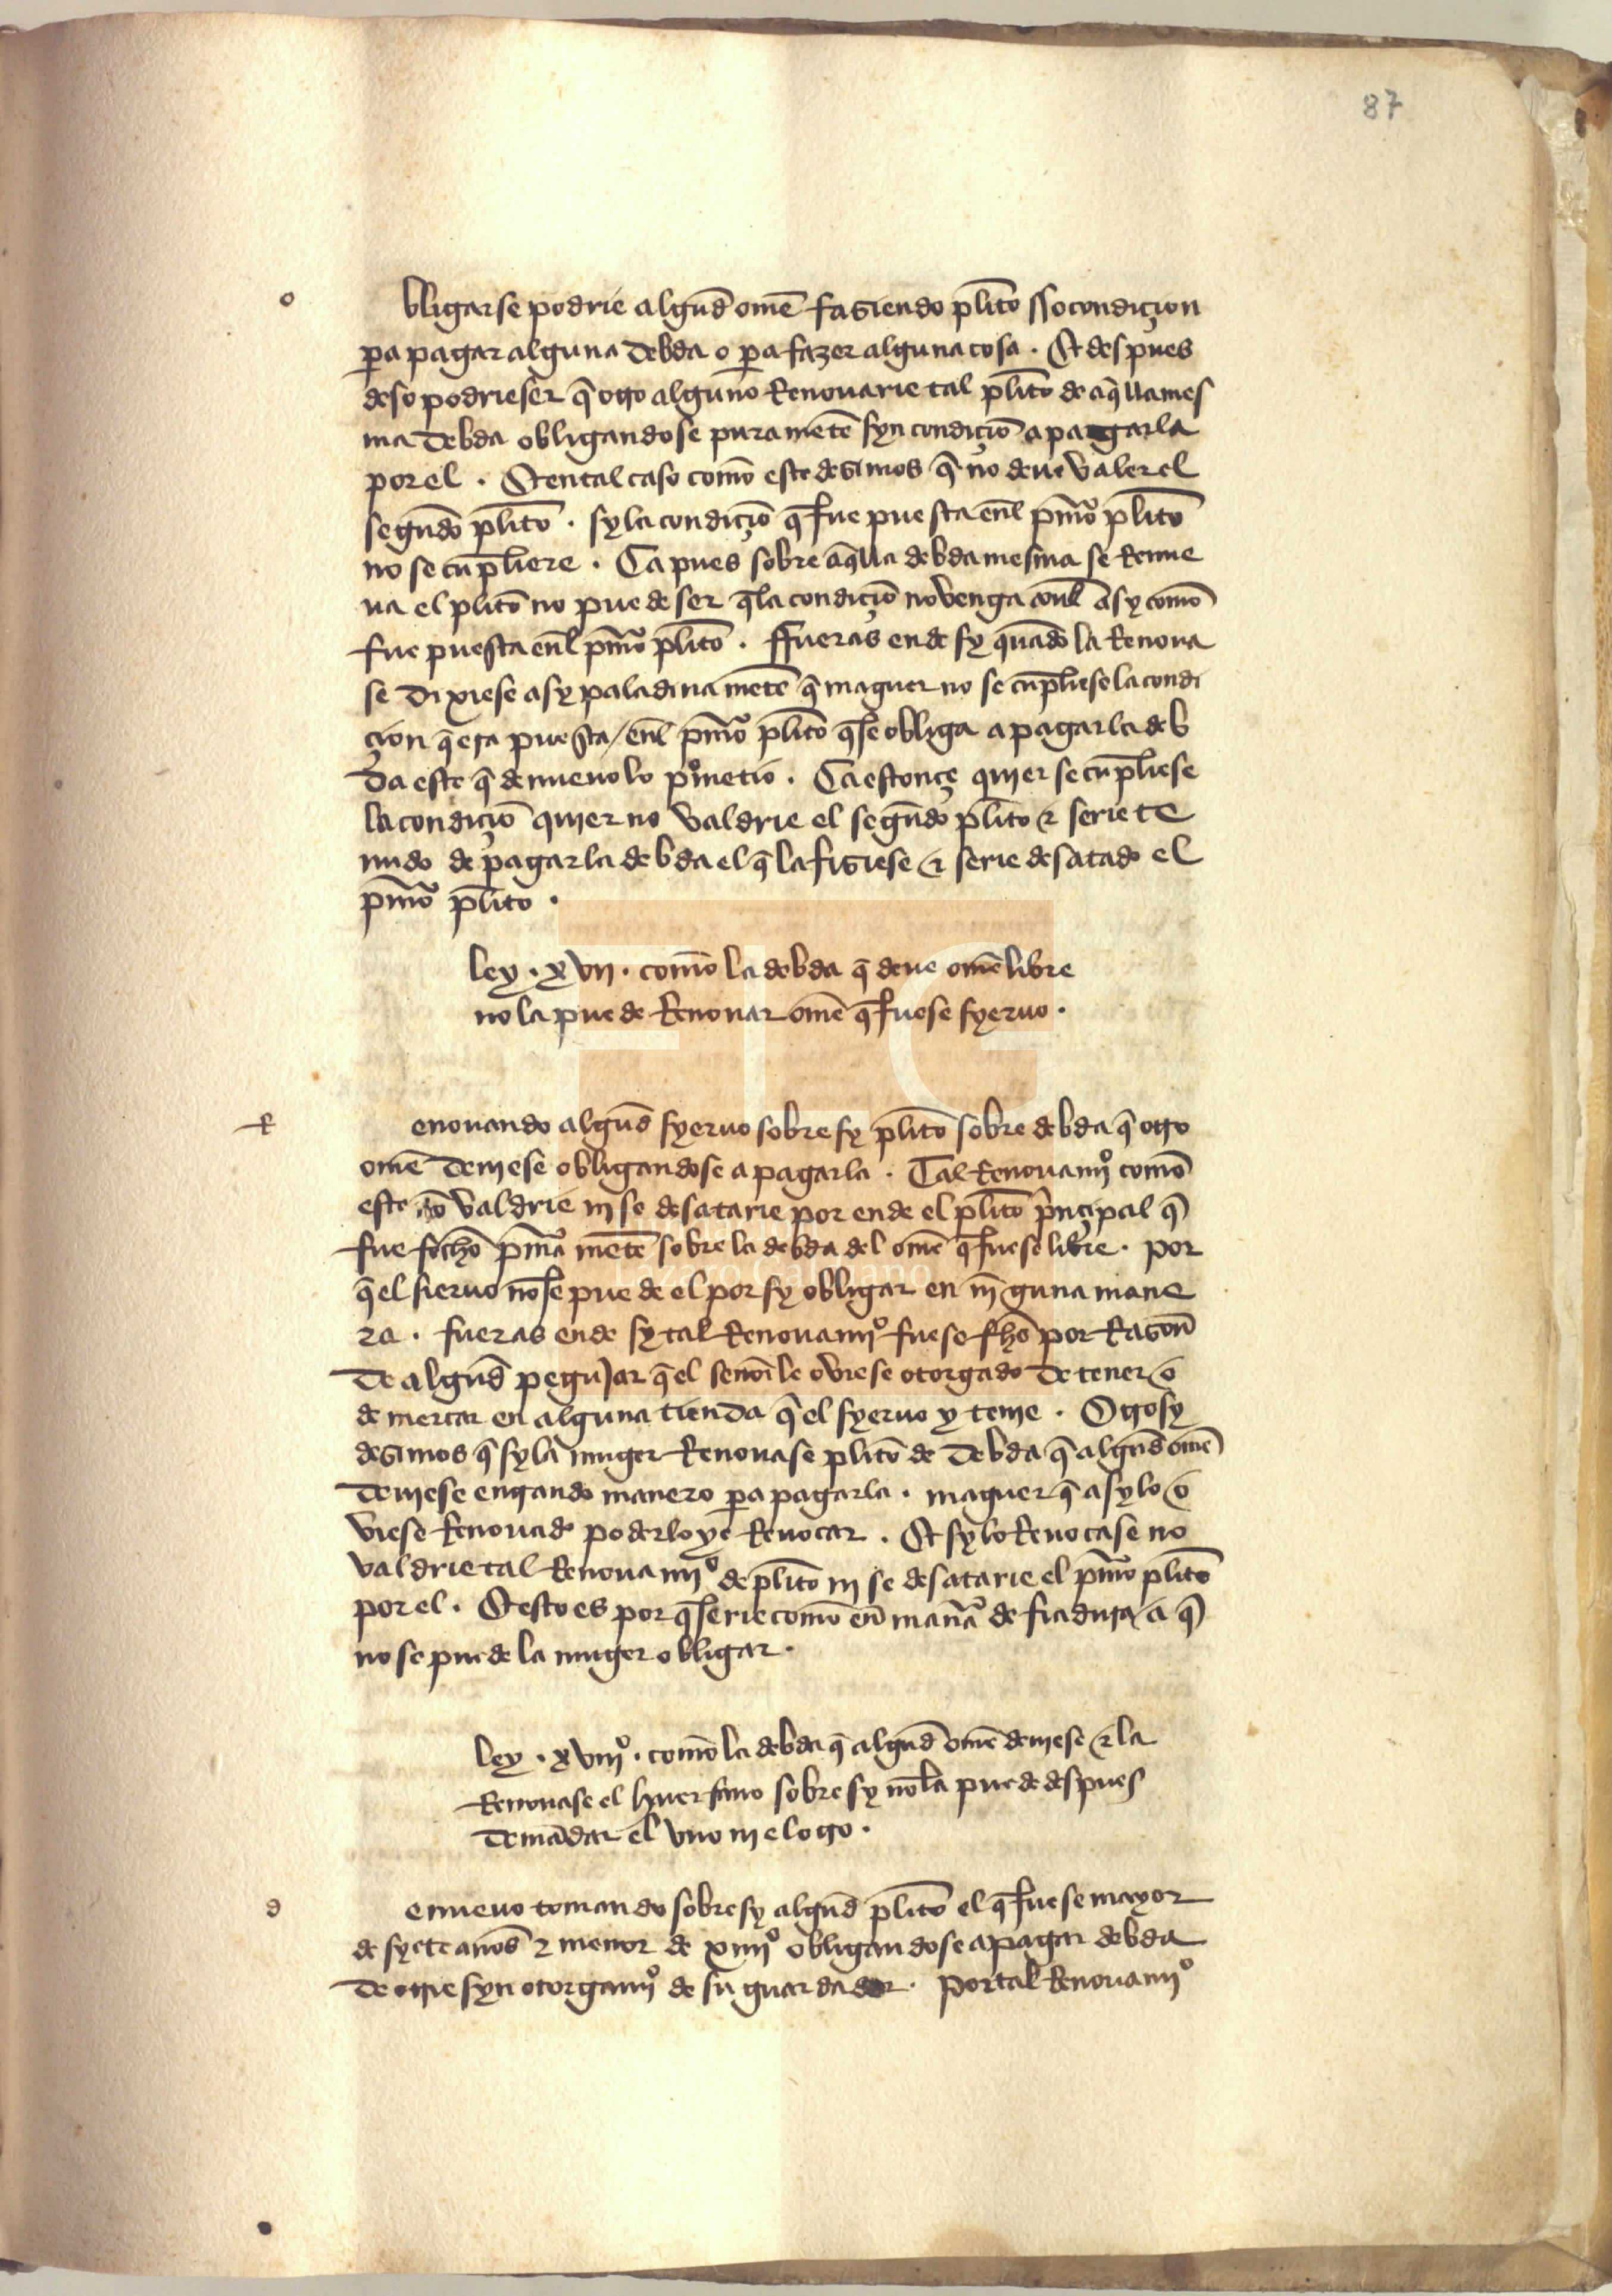 87
o
bligarse podrie algund̃ om̃e fasiendo pl̃ito sso condiçion
p̃a pagar alguna debda o p̃a fazer alguna cosa . Et despues
deso podrie ser q̃ otro alguno Renouarie tal pl̃ito de aq̃lla mes
ma debda obligandose pura mẽte syn condiçiõ a pagarla
por el . Et en tal caso como este desimos q̃ no deue valer el
segũdo pl̃ito . sy la condiçiõ q̃ fue puesta enl̃ pm̃o pl̃ito
no se cũpliere . Ca pues sobre aq̃lla debda mesma se Renue
ua el pl̃ito no puede ser q̃ la condiçiõ no venga conl̃ asy como
fue puesta enl̃ pm̃o pl̃ito . ffueras ende sy quãdo la Renoua
se dixiese asy paladina mẽte q̃ maguer no se cũpliese la condi
çion q̃ era puesta / enl̃ pm̃o pl̃ito q̃ se obliga a pagar la deb
da este q̃ de nueuo lo pometio . Ca estonçe quier se cũpliese
la condiçiõ quier no valdrie el segũdo pl̃ito & serie te
nudo de pagar la debda el q̃ la fisiese & serie desatado el
pm̃o pl̃ito .
ley . xvij . como la debda q̃ deue om̃e libre
no la puede Renouar om̃e q̃ fuese syeruo .
R
enouando algund̃ syeruo sobre sy pl̃ito sobre debda q̃ otro
om̃e deuiese obligandose a pagarla . Tal Renouamiº como
este nõ valdrie ni se desatarie por ende el pl̃ito pñçipal q̃
fue fecho pm̃a mẽte sobre la debda del om̃e q̃ fuese libre . por
q̃ el sieruo nõ se puede el por sy obligar en nĩguna mane
ra . fueras ende sy tal Renouamiº fuese fh̃o por Rason
de algund̃ pegujar q̃ el señor le oviese otorgado de tener o
de mercar en alguna tienda q̃ el syeruo y tenie . Otrosy
desimos q̃ sy la muger Renouase pl̃ito de debda q̃ algund̃ om̃e
deuiese entrando manero p̃a pagarla . maguer q̃ asy lo o
viese Renouado poder lo ye Reuocar . Et sy lo Reuocase no
valdrie tal Renouamiº de pl̃ito ni se desatarie el pm̃o pl̃ito
por el . Et esto es por q̃ serie como en mañra de fiadura a q̃
no se puede la muger obligar .
ley . xviijº . como la debda q̃ algund̃ om̃e deuiese & la
Renouase el huerfano sobre sy nõ la puede despues
demãdar el vno ni el otro .
d
e nueuo tomando sobre sy algund̃ pl̃ito el q̃ fuese mayor
de syete años & menor de xiiijº obligandose a pagar debda
de otrie syn otorgamiº de su guardador . por tal Renouamiº